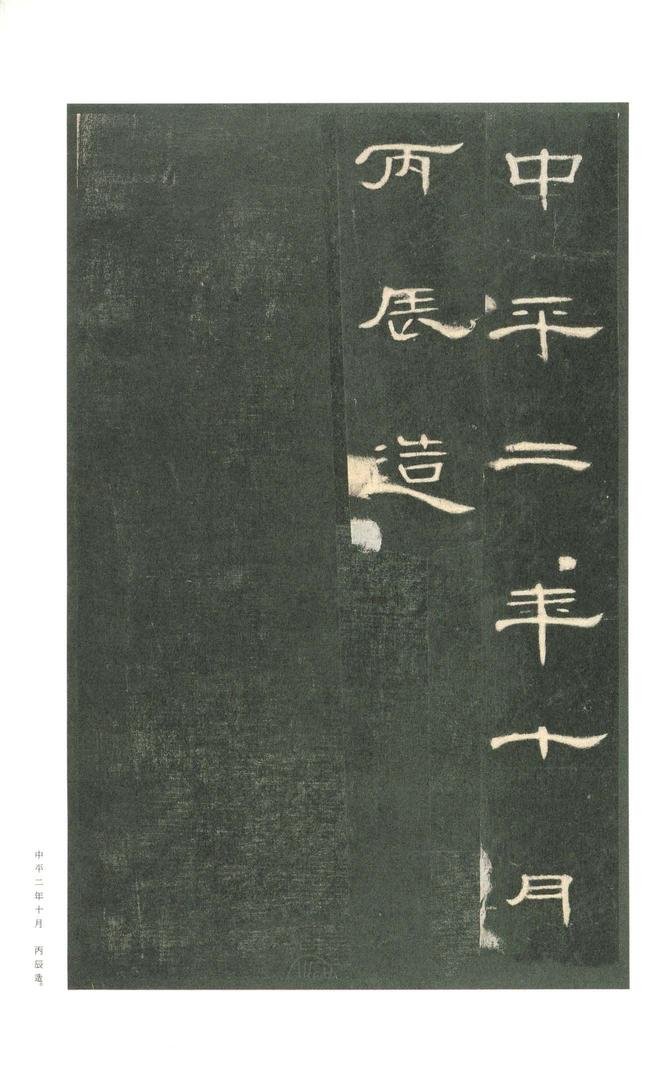 中平二年十月
丙辰造
中平二年十月　丙辰造。